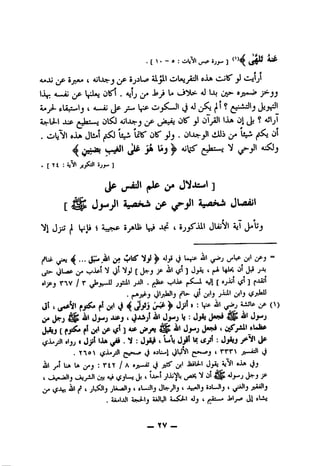 عَنْهُ تَلَهَّىٰ ﴾(١) [ سورة عبس الآيات : ٥ - ١٠ ] .
أرأيت لو كانت هذه التقريعات المؤلمة صادرة عن وجدانه ، معبرة عن ندمه
ووخز ضميره حين بدا له خلاف ما فرط من رأيه . أكان يعلنها عن نفسه بهذا
التهويل والتشنيع ؟ ألم يكن له في السكوت عنها ستر على نفسه ، واستبقاء لحرمة
آرائه ؟ بلى إن هذا القرآن لو كان يفيض عن وجدانه لكان يستطيع عند الحاجة
أن يكتم شيئاً من ذلك الوجدان . ولو كان كاتماً شيئاً لكتم أمثال هذه الآيات .
ولكنه الوحي لا يستطيع كتمانه ﴿ وَمَا هُوَ عَلَى الْغَيْبِ بِضَنِينٍ ﴾
[ سورة التكوير الآية : ٢٤ ] .
[ استدلال من علم النفس على
انفصال شخصية الوحي عن شخصية الرسول ﷺ ]
وتأمل آية الأنفال المذكورة ، تجد فيها ظاهرة عجيبة ؛ فإنها لم تنزل إلا
= وعن ابن عباس رضي الله عنهما في قوله ﴿ لولا كتاب من الله سبق ... ﴾ يعني غنائم
بدر قبل أن يحلها لهم ، يقول [ أي الله عز وجل ] لولا أني لا أعذب من عصاني حتى
أتقدم [ أي أنذره ] إليه لمسكم عذاب عظيم . الدر المنثور للسيوطي ٣ / ٣٦٧ وعزاه
للطبري وابن المنذر وابن أبي حاتم والطبراني وغيرهم .
(١) عن عائشة رضي الله عنها : أنزل ﴿ عَبَسَ وَتَوَلَّىٰ ﴾ في ابن أم مكتوم الأعمى ، أتى
رسول الله ﷺ فجعل يقول : يا رسول الله أرشدني ، وعند رسول الله ﷺ رجل من
عظماء المشركين ، فجعل رسول الله ﷺ يعرض عنه [ أي عن ابن أم مكتوم ] ويقبل
على الآخر ويقول : أترى بما أقول بأساً ، فيقول : لا . ففي هذا أنزل » رواه الترمذي
في التفسير ٣٣٣١ ، وصحح الألباني إسناده في صحيح الترمذي ٢٦٥١ .
وفي هذه الآية يقول الحافظ ابن كثير في تفسيره ٨ / ٣٤٢ : ومن ها هنا أمر الله
عز وجل رسوله ﷺ أن لا يخص بالإنذار أحداً ، بل يساوي فيه بين الشريف والضعيف ،
والفقير والغني ، والسادة والعبيد ، والرجال والنساء ، والصغار والكبار ، ثم الله يهدي من
يشاء إلى صراط مستقيم ، وله الحكمة البالغة والحجة الدامغة .
- ٢٧ -